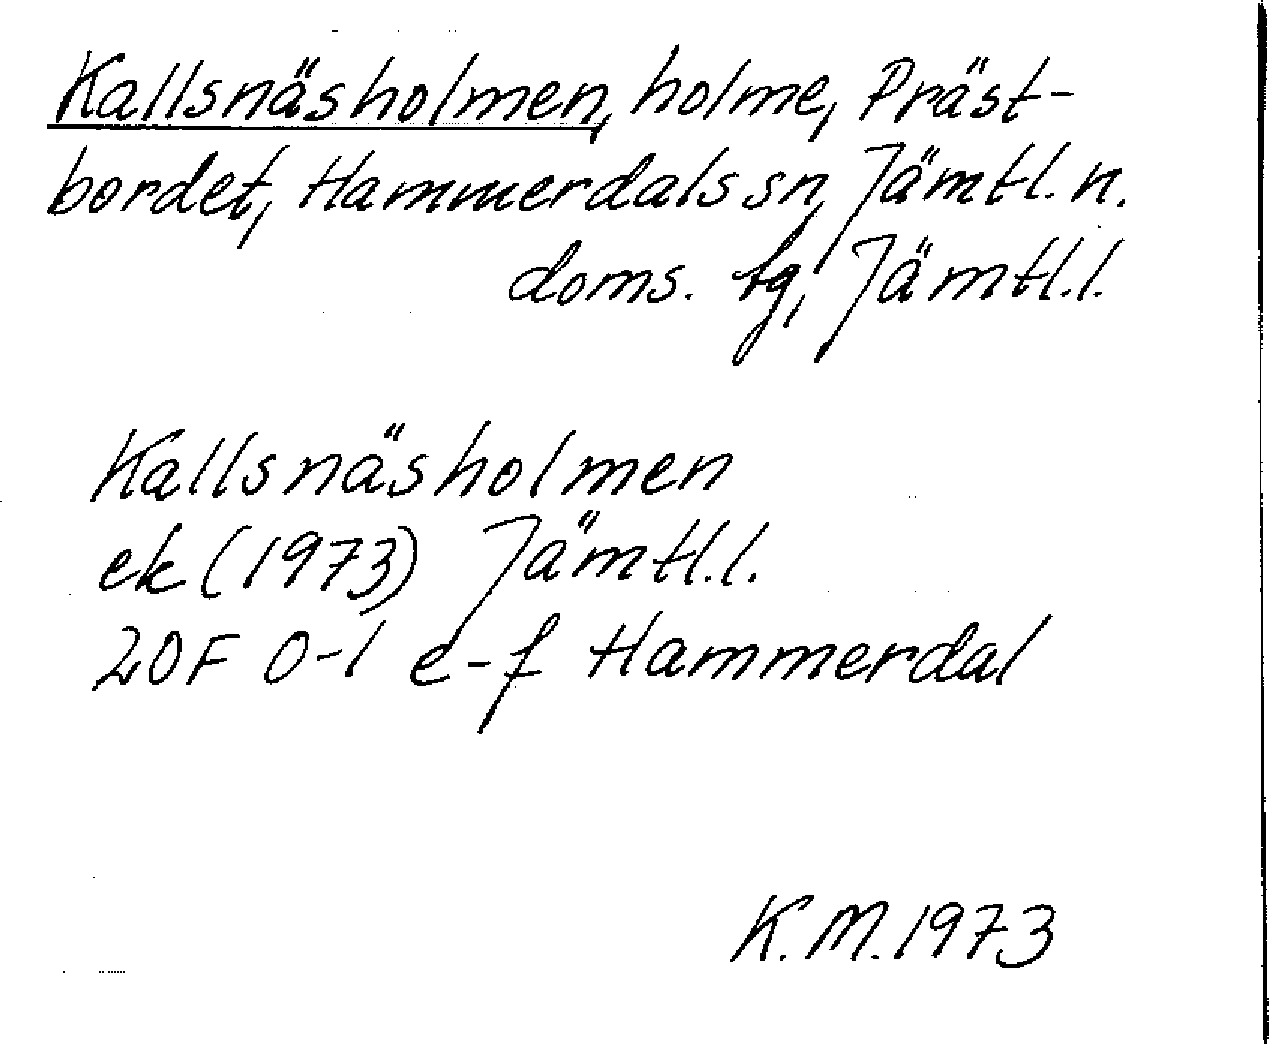 Kallsnäsholmen, holme, Präst-
bordet, Hammerdals sn, Jämtl. n.
doms. tg, Jämtl.l.
Kallsnäsholmen
ek (1973) Jämtl.l.
20F 0-1 e-f Hammerdal
K.M.1973